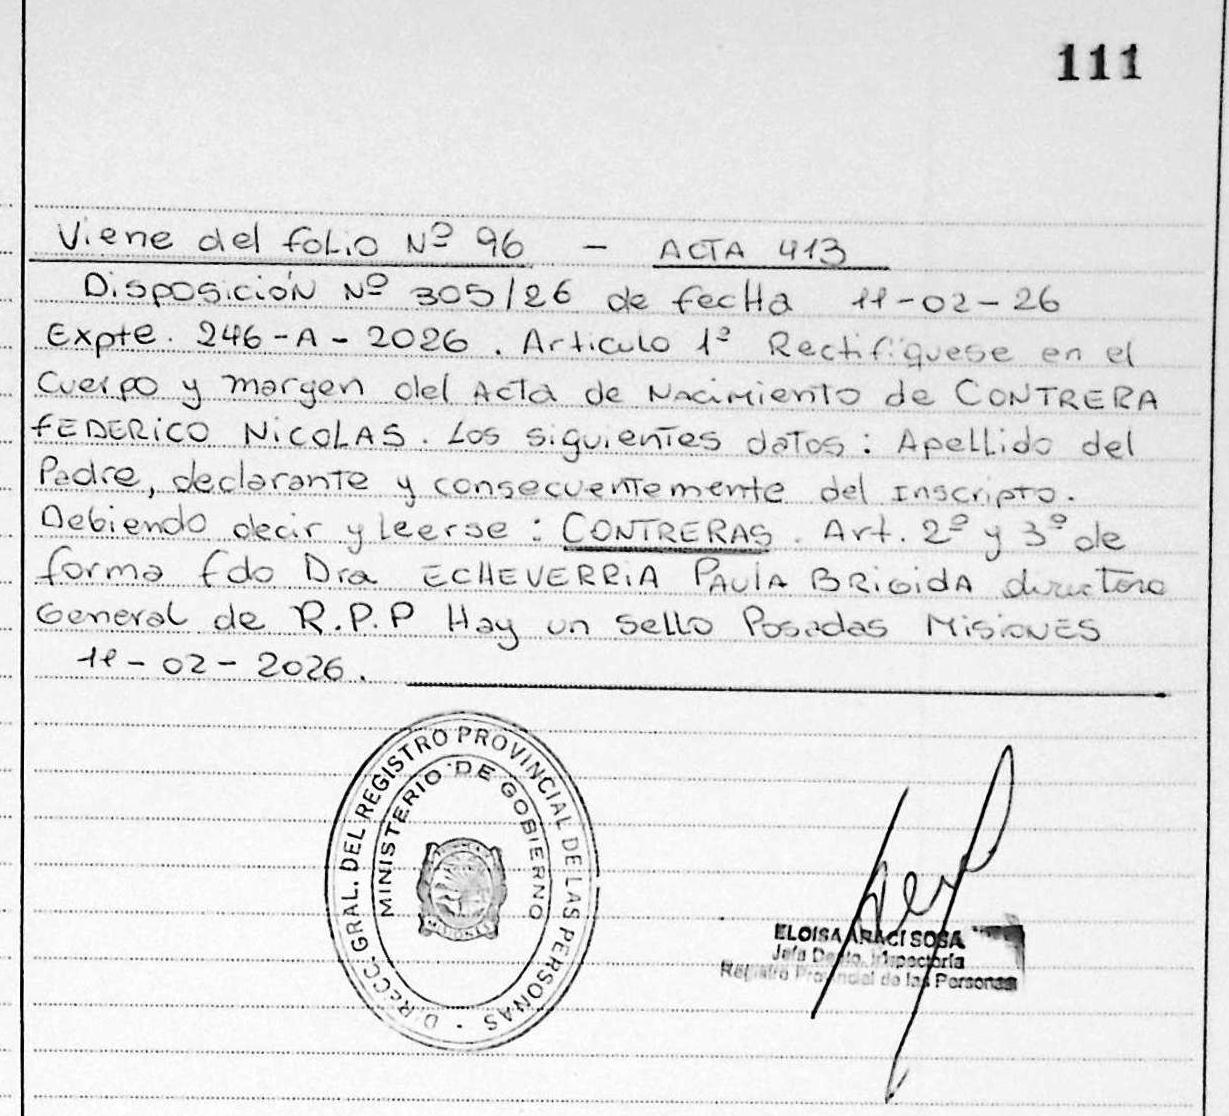 111
Viene del folio Nº 96 - ACTA 413
Disposición Nº 305/26 de fecHa 11-02-26
Expte. 246-A-2026. Articulo 1º Rectifíquese en el
Cuerpo y margen del Acta de Nacimiento de CONTRERA
FEDERICO NICOLAS. Los siguientes datos: Apellido del
Padre, declarante y consecuentemente del Inscripto.
Debiendo decir y leerse: CONTRERAS. Art. 2º y 3º de
forma fdo Dra ECHEVERRIA PAULA BRIGIDA directora
General de R.P.P Hay un sello Posadas Misiones
11-02-2026.
DIRECC. GRAL. DEL REGISTRO PROVINCIAL DE LAS PERSONAS
MINISTERIO DE GOBIERNO
MISIONES
ELOISA ARACI SOSA
Jefa Depto. Inspectoría
Registro Provincial de las Personas